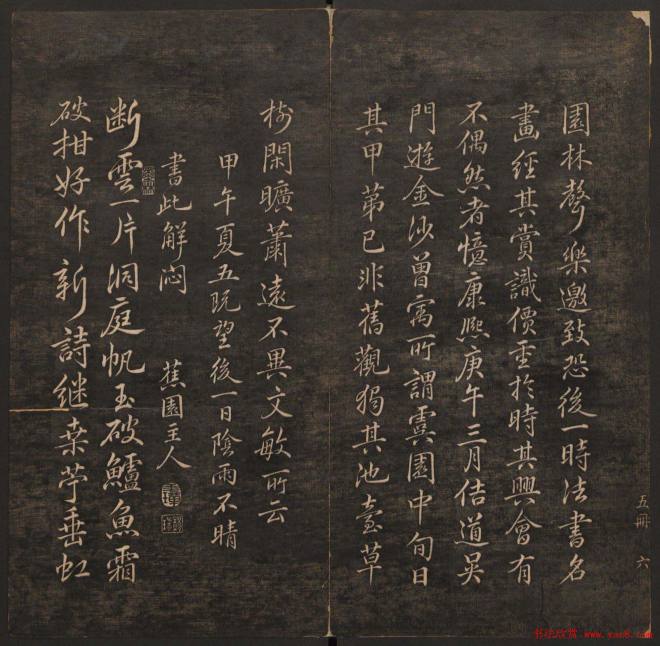 園林聲樂邀致恐後一時法書名
畫經其賞識價重於時其興會有
不偶然者憶康熙庚午三月佶道吳
門遊金沙曾寓所謂霙園中旬日
其甲第已非舊觀獨其池臺草
樹閑曠蕭遠不異文敏所云
甲午夏五既望後一日陰雨不晴
書此解悶 蕉園主人
斷雲一片洞庭帆玉破鱸魚霜
破柑好作新詩繼桑苧垂虹
五冊 六
书法欣赏 www.yac8.com